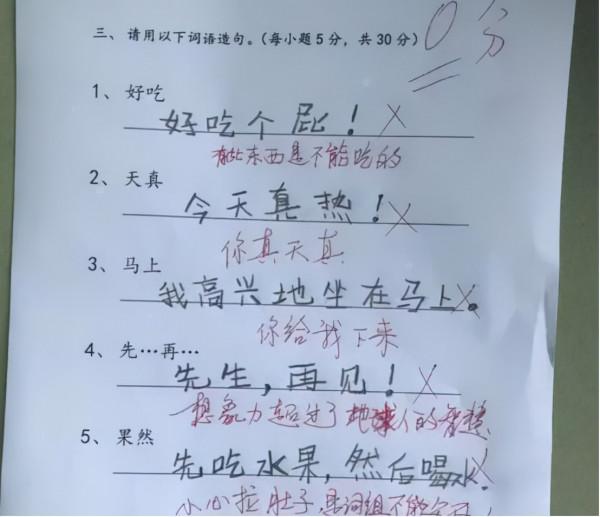 三、请用以下词语造句。(每小题5分,共30分) 0分
1、好吃
好吃个屁!
有些东西是不能吃的
2、天真
今天真热!
你真天真
3、马上
我高兴地坐在马上。
你给我下来
4、先…再…
先生,再见!
想象力超过了地球人的智慧
5、果然
先吃水果,然后喝水
小心拉肚子,是词组不能分开